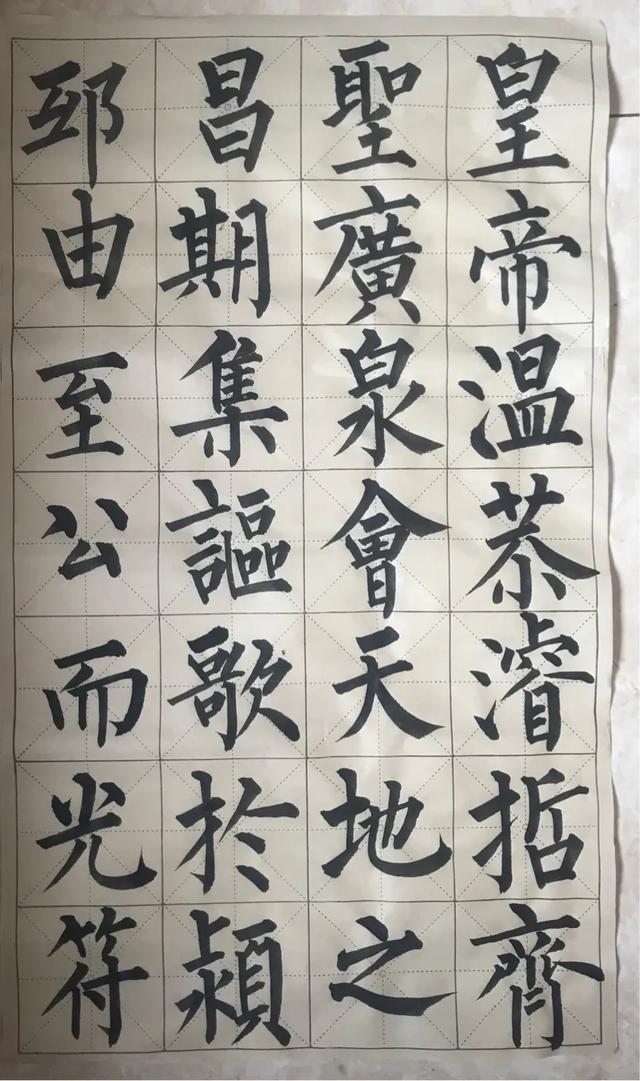 皇帝温恭濬哲齊
聖廣泉會天地之
昌期集謳歌於潁
邸由至公而光符